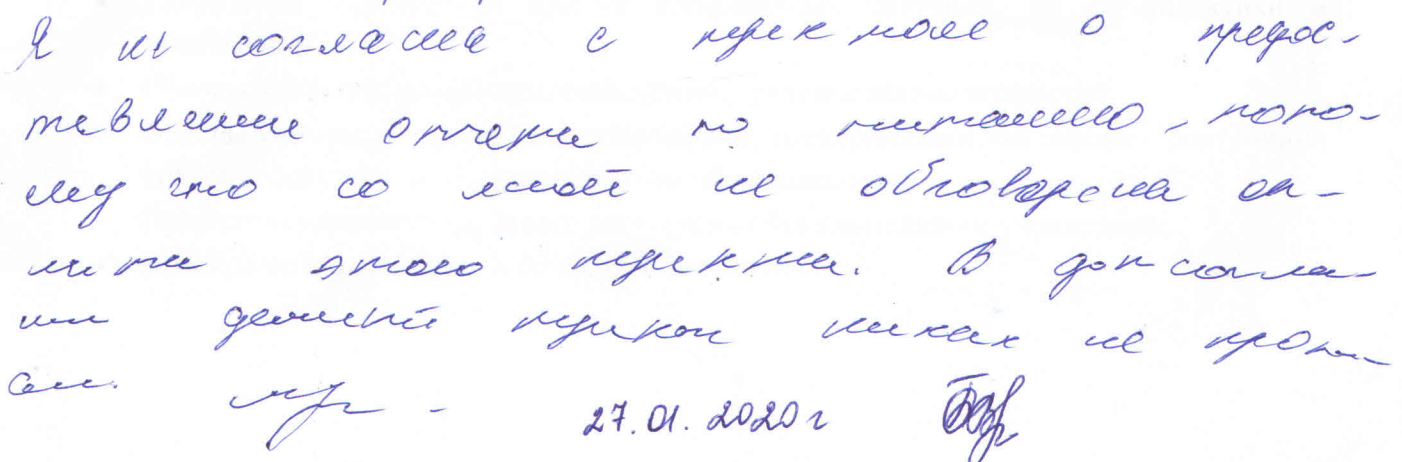 Я не согласна с пунктом о предос-
тавлении отчета по питанию, пото-
му что со мной не обговорена оп-
лата этого пункта. В доп согла-
ше данный пункт никак не пропи-
сан.
27.01.2020 г